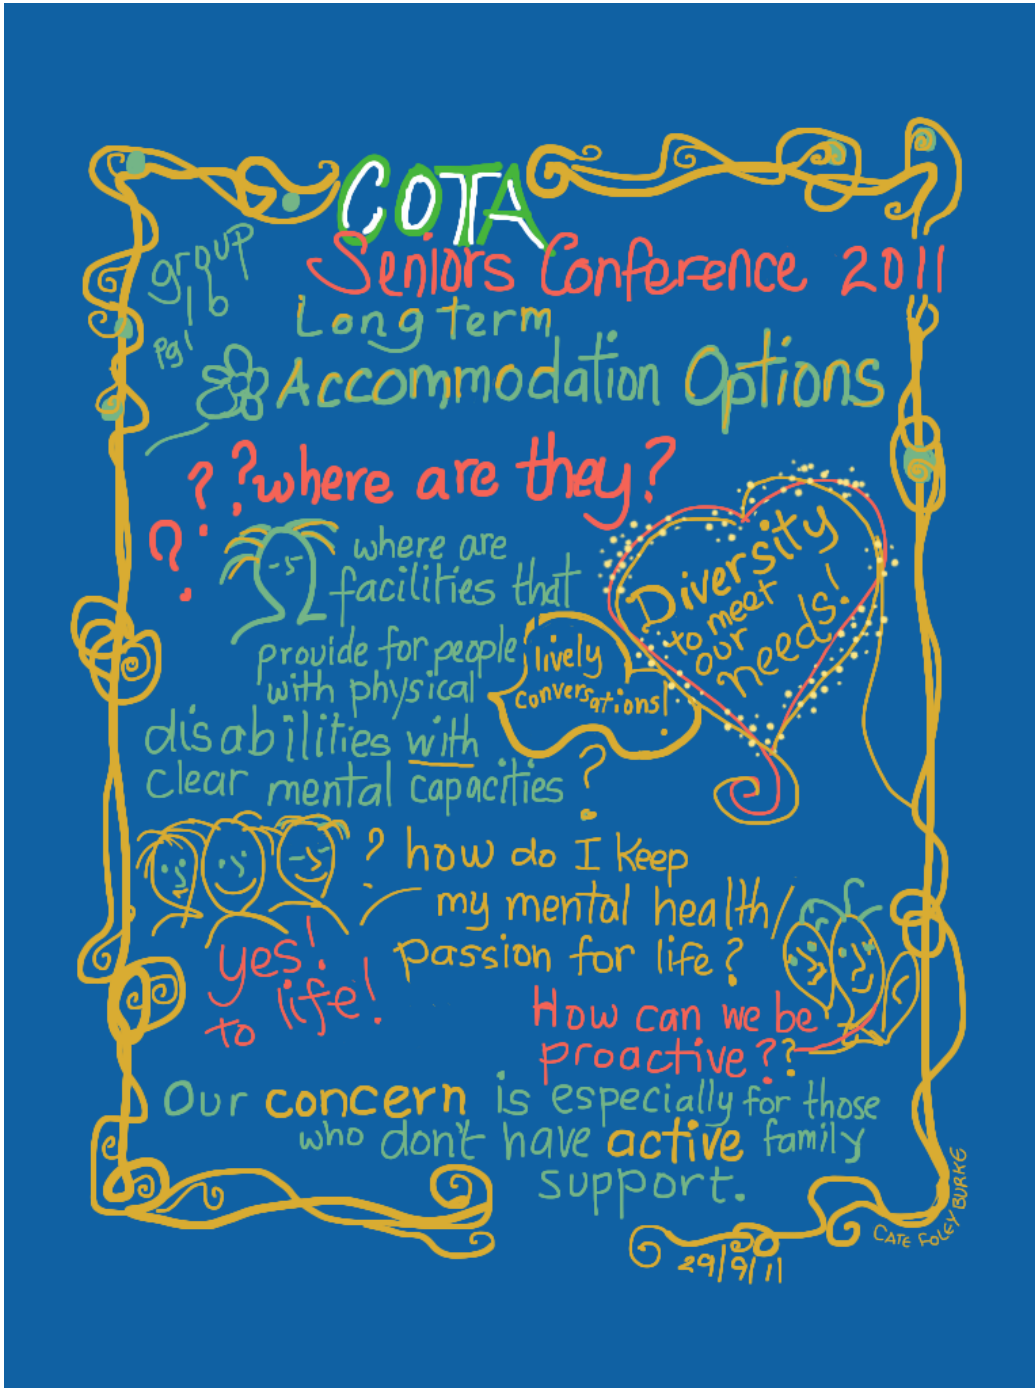 COTA
Seniors Conference 2011
group
1b
pg1
Long term
Accommodation Options
???where are they?
where are
facilities that
provide for people
with physical
disabilities with
clear mental capacities?
lively
conversations!
Diversity
to meet
our
needs!
? how do I keep
my mental health/
passion for life?
yes!
to life!
How can we be
proactive??
Our concern is especially for those
who don't have active family
support.
29/9/11
CATE FOLEY BURKE